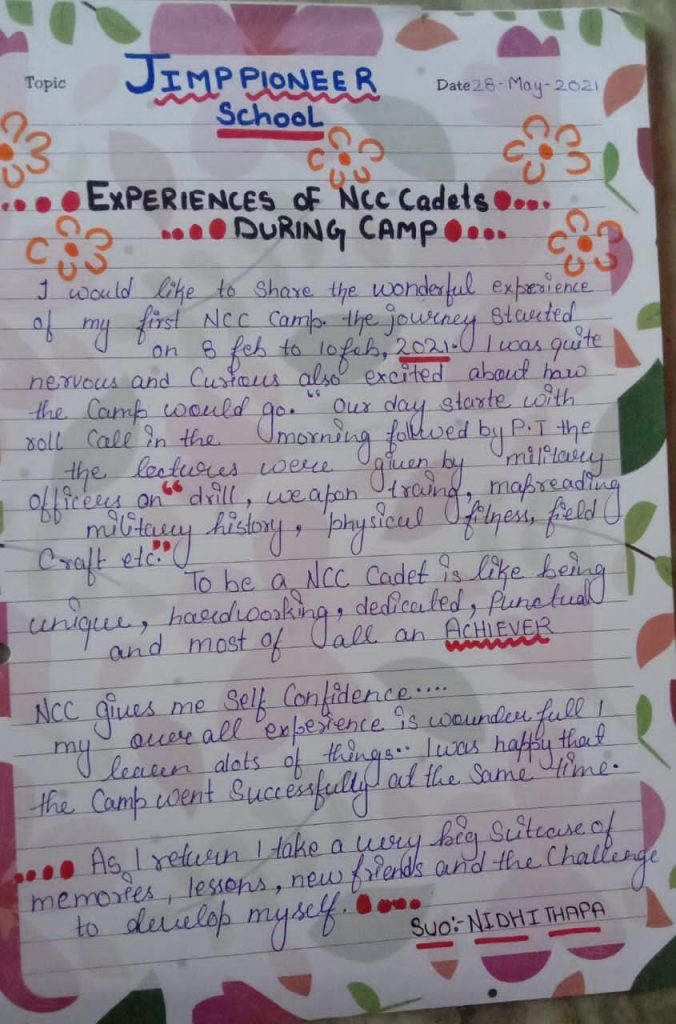 Topic JIMP PIONEER Date 28-May-2021
SCHOOL
EXPERIENCES OF NCC Cadets
DURING CAMP
I would like to share the wonderful experience
of my first NCC camp. the journey started
on 8 feb to 10 feb, 2021. I was quite
nervous and curious also excited about how
the Camp would go. " Our day starte with
roll call in the morning follwed by P.T the
the lectures were given by military
officers on " drill, weapon traing, mapreading
military history, physical fitness, field
Craft etc."
To be a NCC Cadet is like being
unique, hardworking, dedicated, Punctual
and most of all an ACHIEVER
NCC gives me Self Confidence....
my over all experience is wounder full I
learn alots of things.. I was happy that
the Camp went Successfully at the same time.
.... As I return I take a very big Suitcase of
memories, lessons, new friends and the Challenge
to develop myself. ....
SUO:- NIDHI THAPA